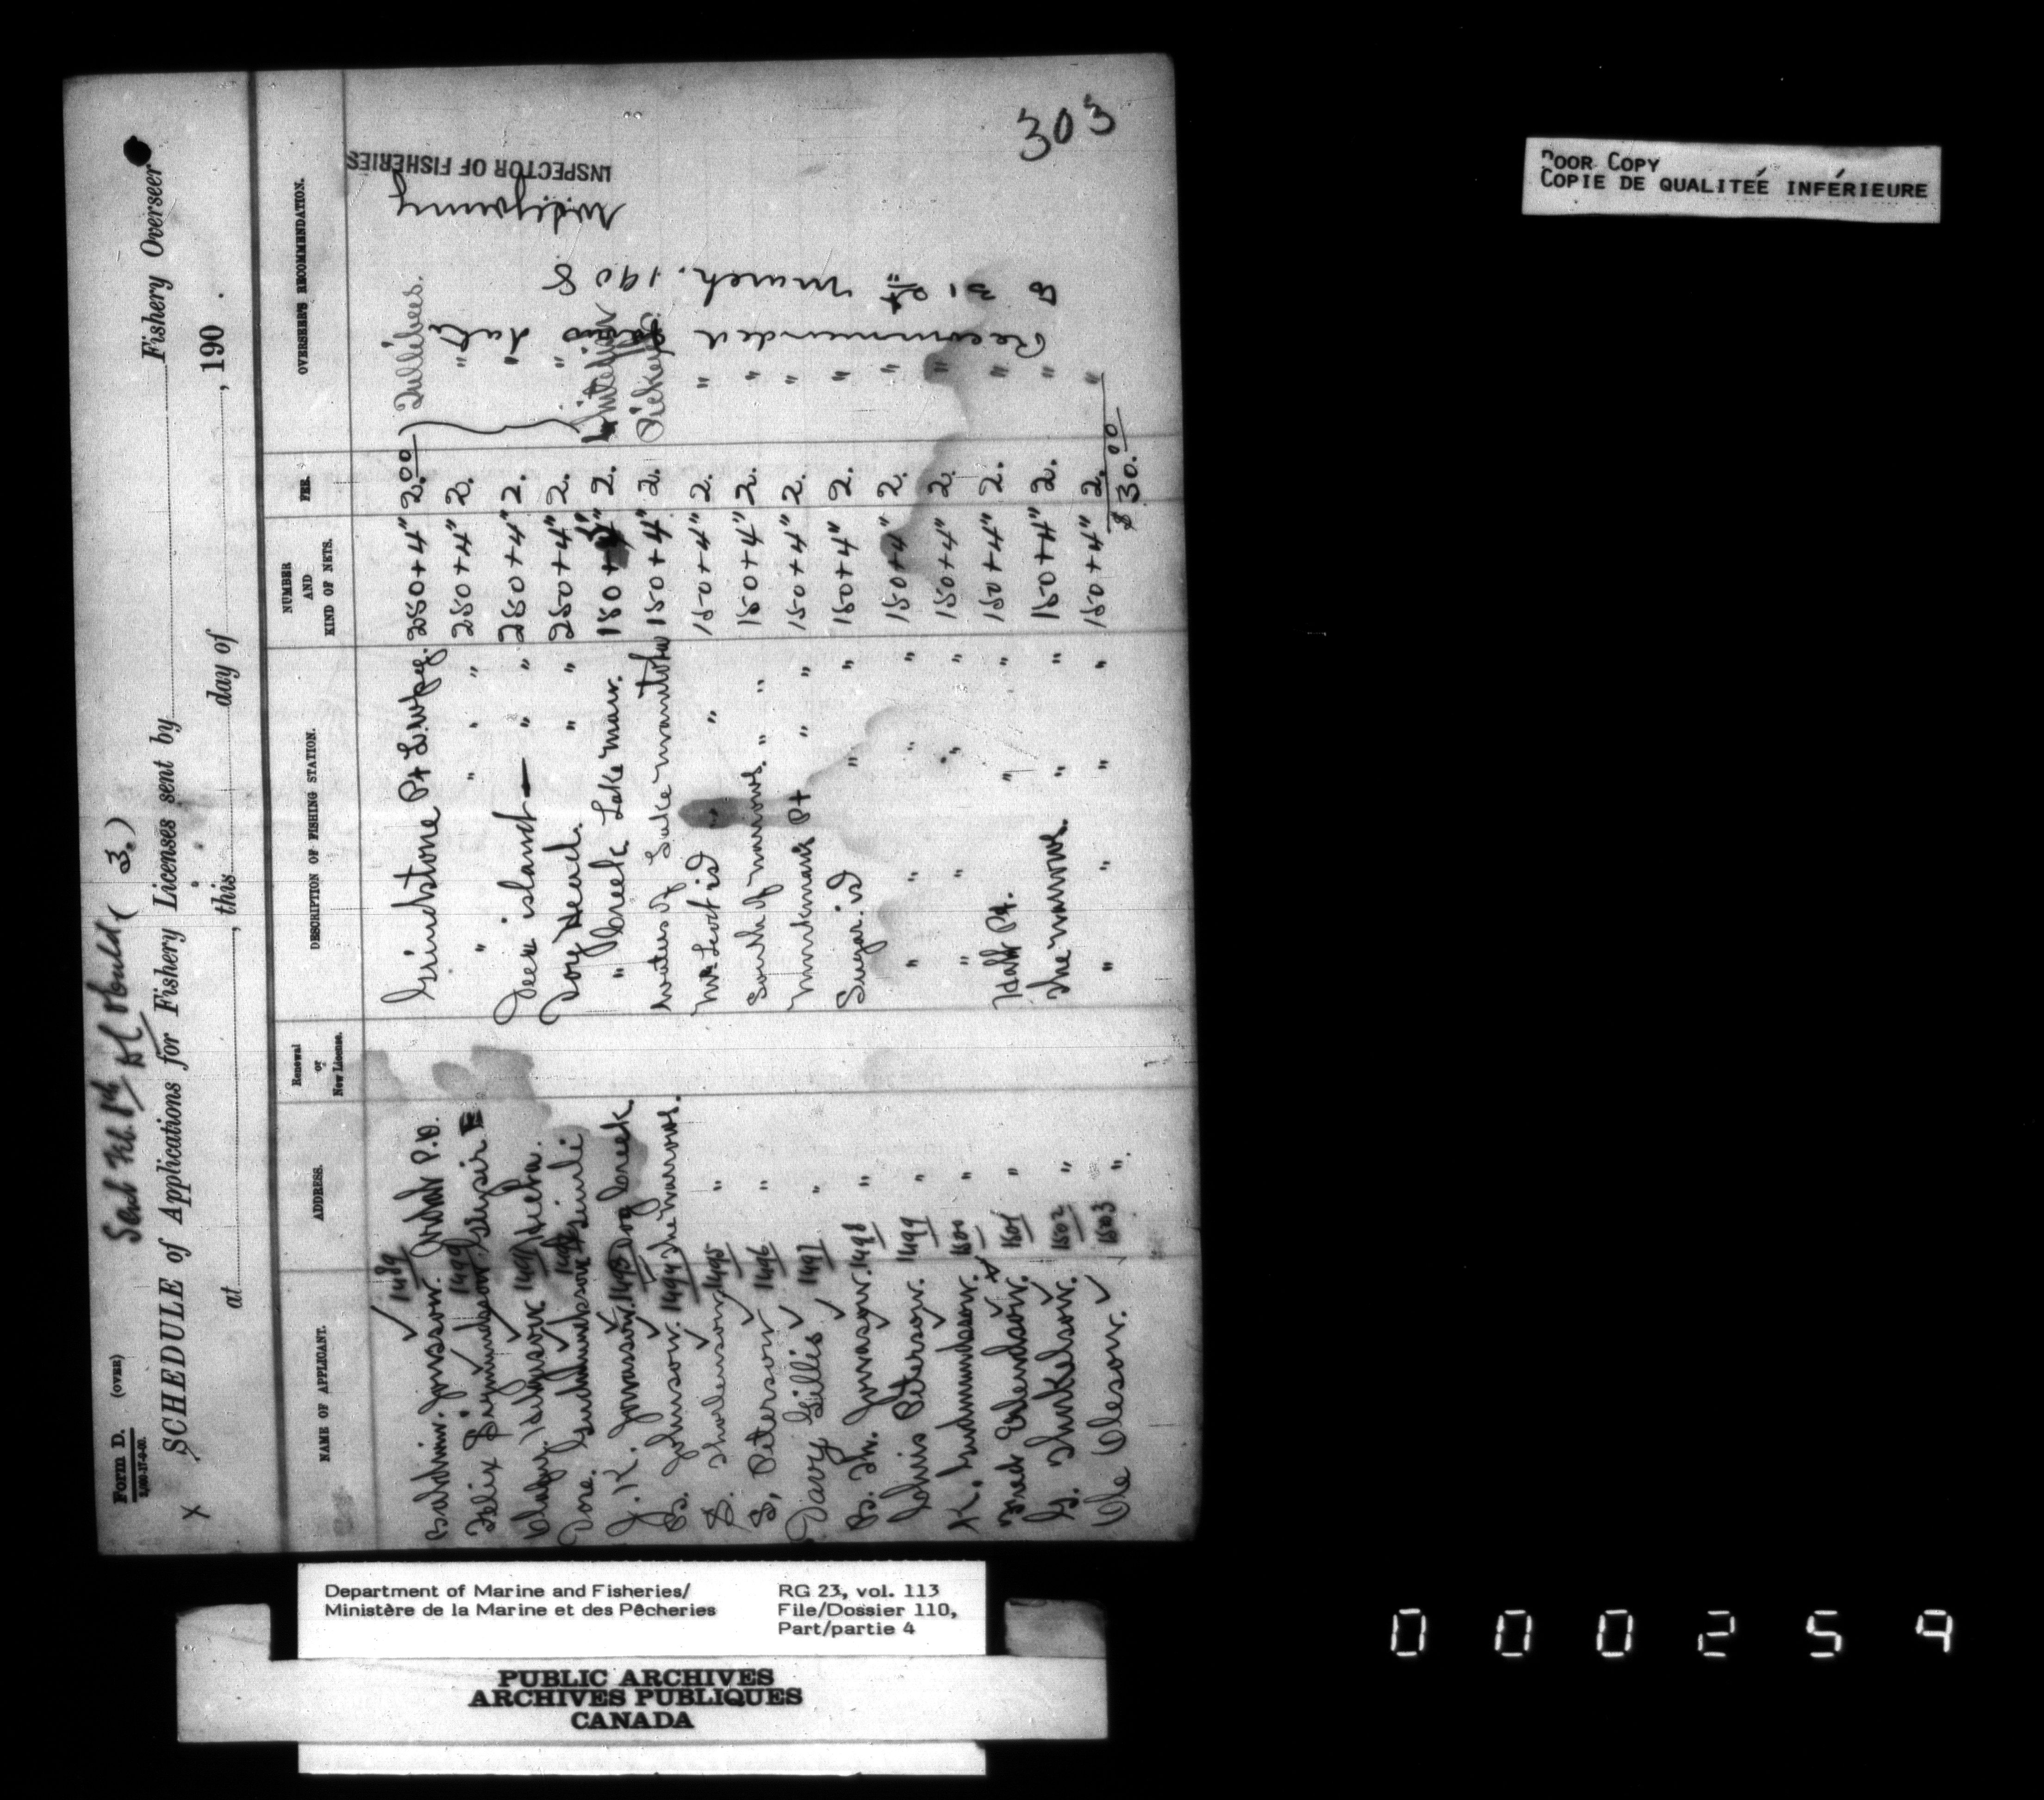 Form D. (OVER)
Sent Feb. 1st
( 3.)
SCHEDULE of Applications for Fishery Licenses sent by Fishery Overseer
at , this day of , 190 .
NAME OF APPLICANT. ADDRESS. Renewal or New License. DESCRIPTION OF FISHING STATION. NUMBER AND KIND OF NETS. FEE. OVERSEER'S RECOMMENDATION.
Baldvin Jonsson. 1489 P.O. Grindstone Pt L. Wpeg. 250 + 4" 2.00 Tullibees.
Felix Sigmundson Geysir " " " " 250 + 4" 2. "
Hecla. Deer island — " " 250 + 4" 2. "
Gimli Dog Head. " " 250 + 4" 2. "
J. K. Jonasson. 1493 Dog Creek. " Creek Lake Man. 150 + 2. Whitefish
B. Johnson. 1494 The narrows. waters of Lake Manitoba 150 + 4" 2. Pickerel
S. 1495 " " " 150 + 4" 2. "
S. Peterson 1496 " South of narrows. " " 150 + 4" 2. "
Davy Gillis 1497 " Pt " " 150 + 4" 2. "
B. Th. Jonasson. 1498 " Sugar. isd " " 150 + 4" 2. "
Peterson. 1499 " " " " " 150 + 4" 2. "
K. Gudmundsson. 1500 " " " " " 150 + 4" 2. "
Fred Erlendson. 1501 " Pt. " " 150 + 4" 2. "
G. Thorkelson. 1502 " The narrows. " " 150 + 4" 2. "
Ole Oleson. 1503 " " " " " 150 + 4" 2. "
$ 30.00
Recommended from date
to 31st March. 1908
INSPECTOR OF FISHERIES
303
POOR COPY
COPIE DE QUALITEÉ INFÉRIEURE
Department of Marine and Fisheries/
Ministère de la Marine et des Pêcheries
RG 23, vol. 113
File/Dossier 110,
Part/partie 4
PUBLIC ARCHIVES
ARCHIVES PUBLIQUES
CANADA
000259